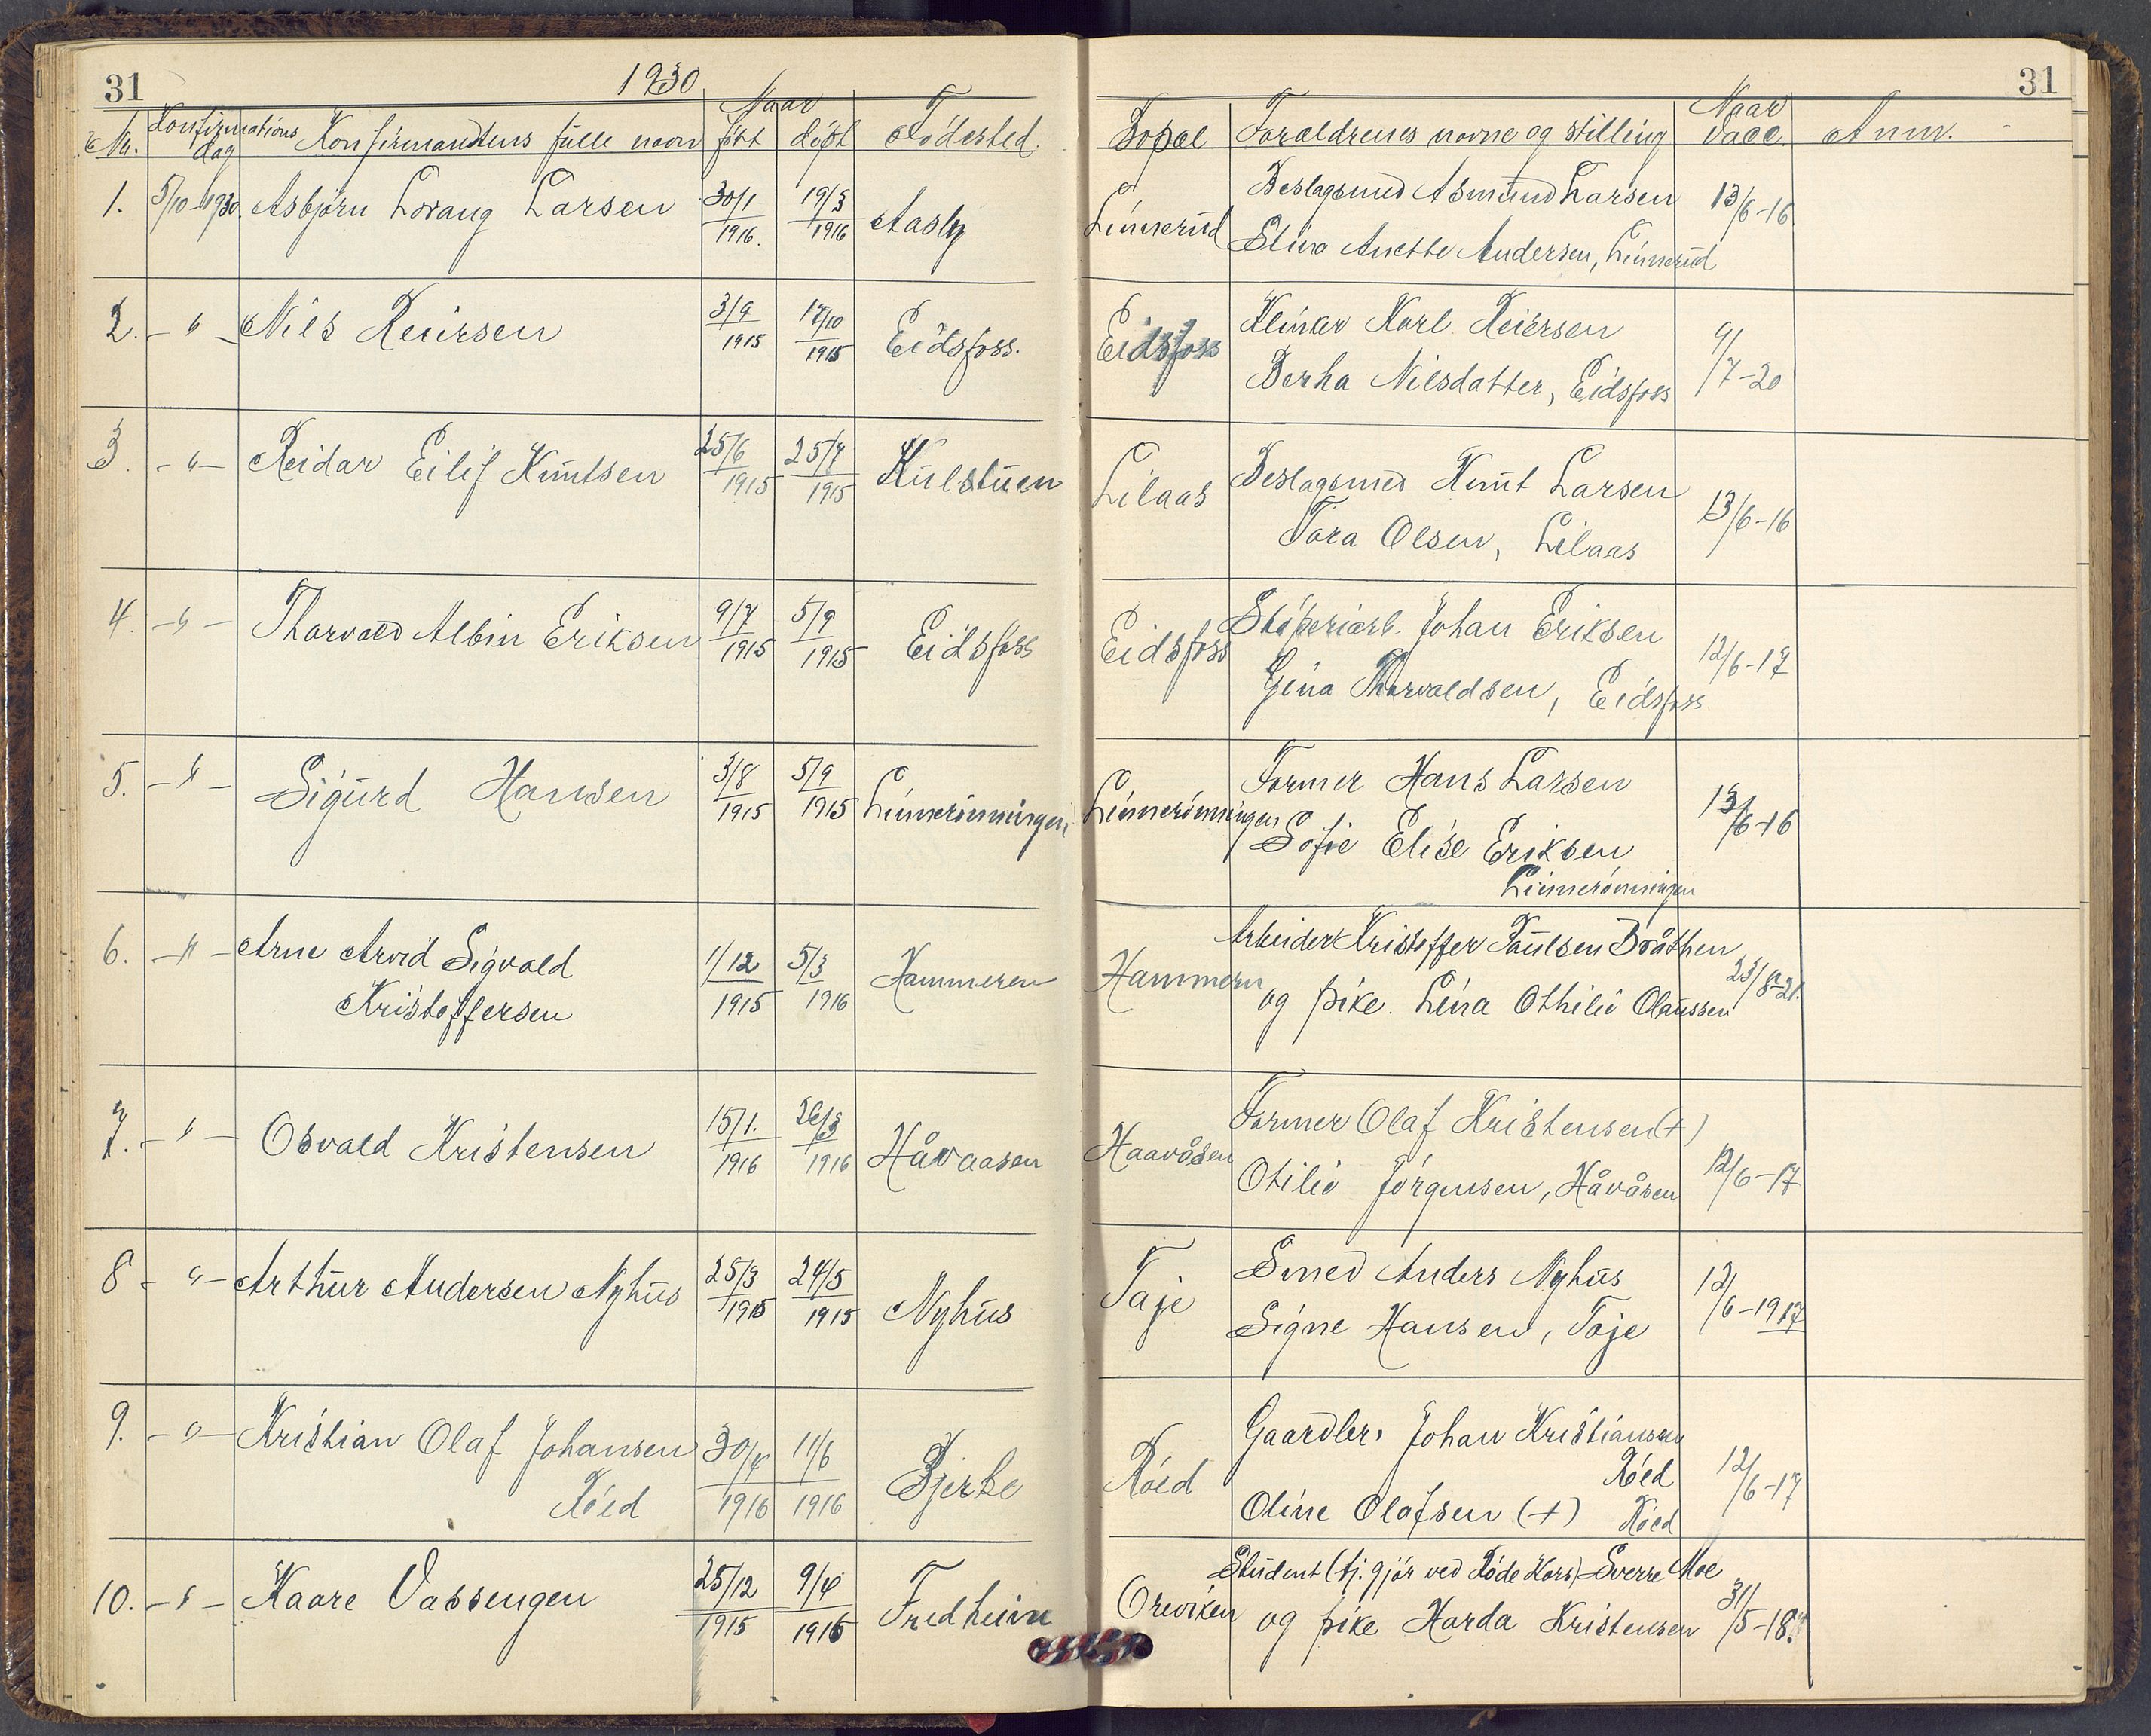 31
1930
Nr. Konfirmations dag Konfirmandens fulle navn Naar født døpt Fødested.
1. 5/10-1930. Asbjørn Lovang Larsen 30/1 1916. 19/3 1916 Aasly
2. - " - Nils Reiersen 3/9 1915 17/10 1915 Eidsfoss.
3. - " - Reidar Eilif Knutsen 25/6 1915 25/7 1915 Kulstuen
4. - " - Thorvald Albin Eriksen 9/7 1915 5/9 1915 Eidsfoss
5. - " - Sigurd Hansen 3/8 1915 5/9 1915 Linnerönningen
6. - " - Arne Arvid Sigvald
Kristoffersen 1/12 1915 5/3 1916 Hammeren
7. - " - Osvald Kristensen 15/1. 1916 26/3 1916 Håvaasen
8 - " - Arthur Andersen Nyhus 25/3 1915 24/5 1915 Nyhus
9. - " - Kristian Olaf Johansen
Röed 30/4 1916 11/6 1916 Bjerke
10. - " - Kaare Vassengen 25/12 1915 9/4 1916 Fredheim
31
Bopæl Foræládrenes navne og stilling Naar vacc. Anm.
Linnerud Beslagsmed Asmund Larsen 13/6-16.
Elina Anette Andersen, Linnerud
Eidsfoss Klinker Karl Reiersen 9/7-20
Berha Nilsdatter, Eidsfoss
Lilaas Beslagsmed Knut Larsen 13/6-16
Tora Olsen, Lilaas
Eidsfoss Støperiarb. Johan Eriksen 12/6-17
Gina Thorvaldsen, Eidsfoss
Linnerönningen Former Hans Larsen 13/6-16
Sofie Elise Eriksen
Linnerönningen
Hammern Arbeider Kristoffer Paulsen Bråthen 23/8-21.
og pike. Lina Othilie Olaussen
Haavåsen Former Olaf Kristensen (+) 12/6-17
Otilie Jörgensen, Håvåsen
Taje Smed Anders Nyhus 12/6-1917
Signe Hansen, Taje
Röed Gaardbr. Johan Kristiansen
Röed 12/6-17
Oline Olafsen (+) Röed
Oreviken Student (tj. gjör ved Röde Kors) Sverre Moe 31/5-18.
og pike Harda Kristensen